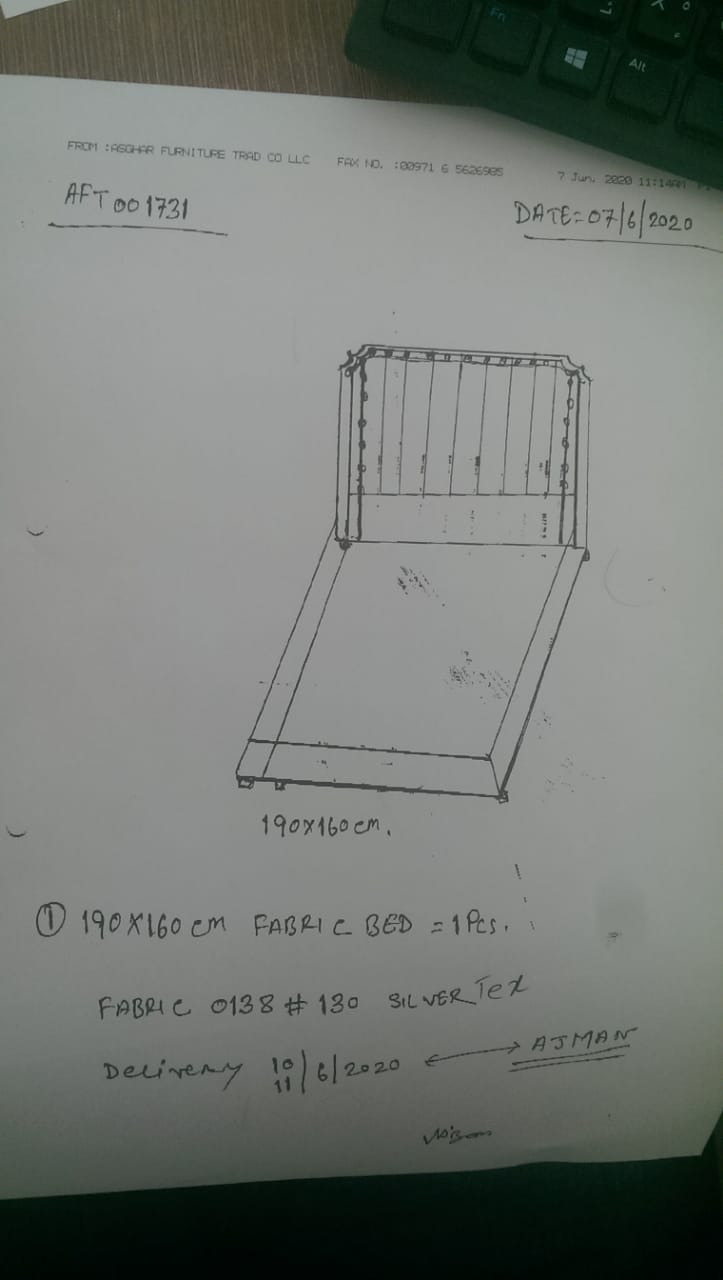 Fn
Alt
FROM :ASGHAR FURNITURE TRAD CO LLC FAX NO. :00971 6 5626985 7 Jun. 2020 11:14AM
AFT001731
DATE=07/6/2020
190X160cm.
① 190X160cm FABRIC BED = 1Pcs.
FABRIC 0138 # 130 SILVERTex
Delivery 10/11/6/2020 ↔ AJMAN